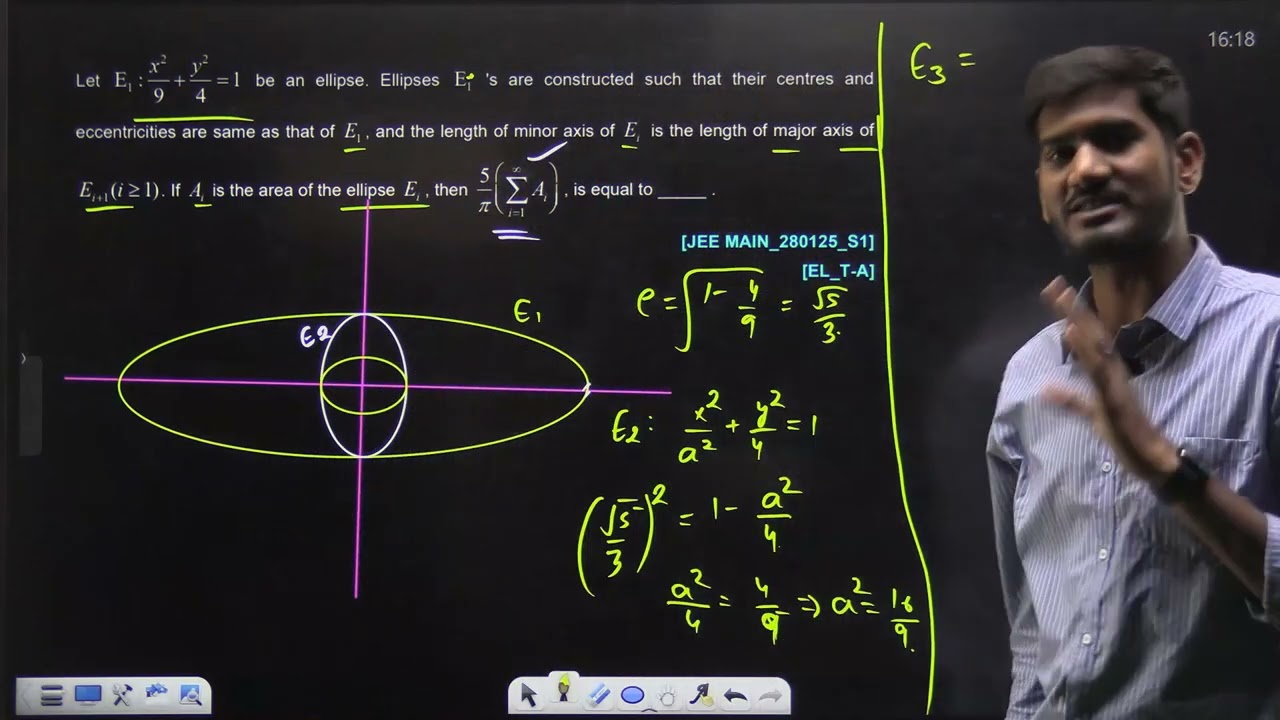 16:18
Let E₁ : x²/9 + y²/4 = 1 be an ellipse. Ellipses E₁ 's are constructed such that their centres and
eccentricities are same as that of E₁, and the length of minor axis of Eᵢ is the length of major axis of
Eᵢ₊₁(i ≥ 1). If Aᵢ is the area of the ellipse Eᵢ, then 5/π (∑_{i=1}^{∞} Aᵢ), is equal to _____ .
[JEE MAIN_280125_S1]
[EL_T-A]
E1
E2
e = √(1 - 4/9) = √5/3.
E₂: x²/a² + y²/4 = 1
(√5/3)² = 1 - a²/4
a²/4 = 4/9 ⇒ a² = 16/9.
E₃ =